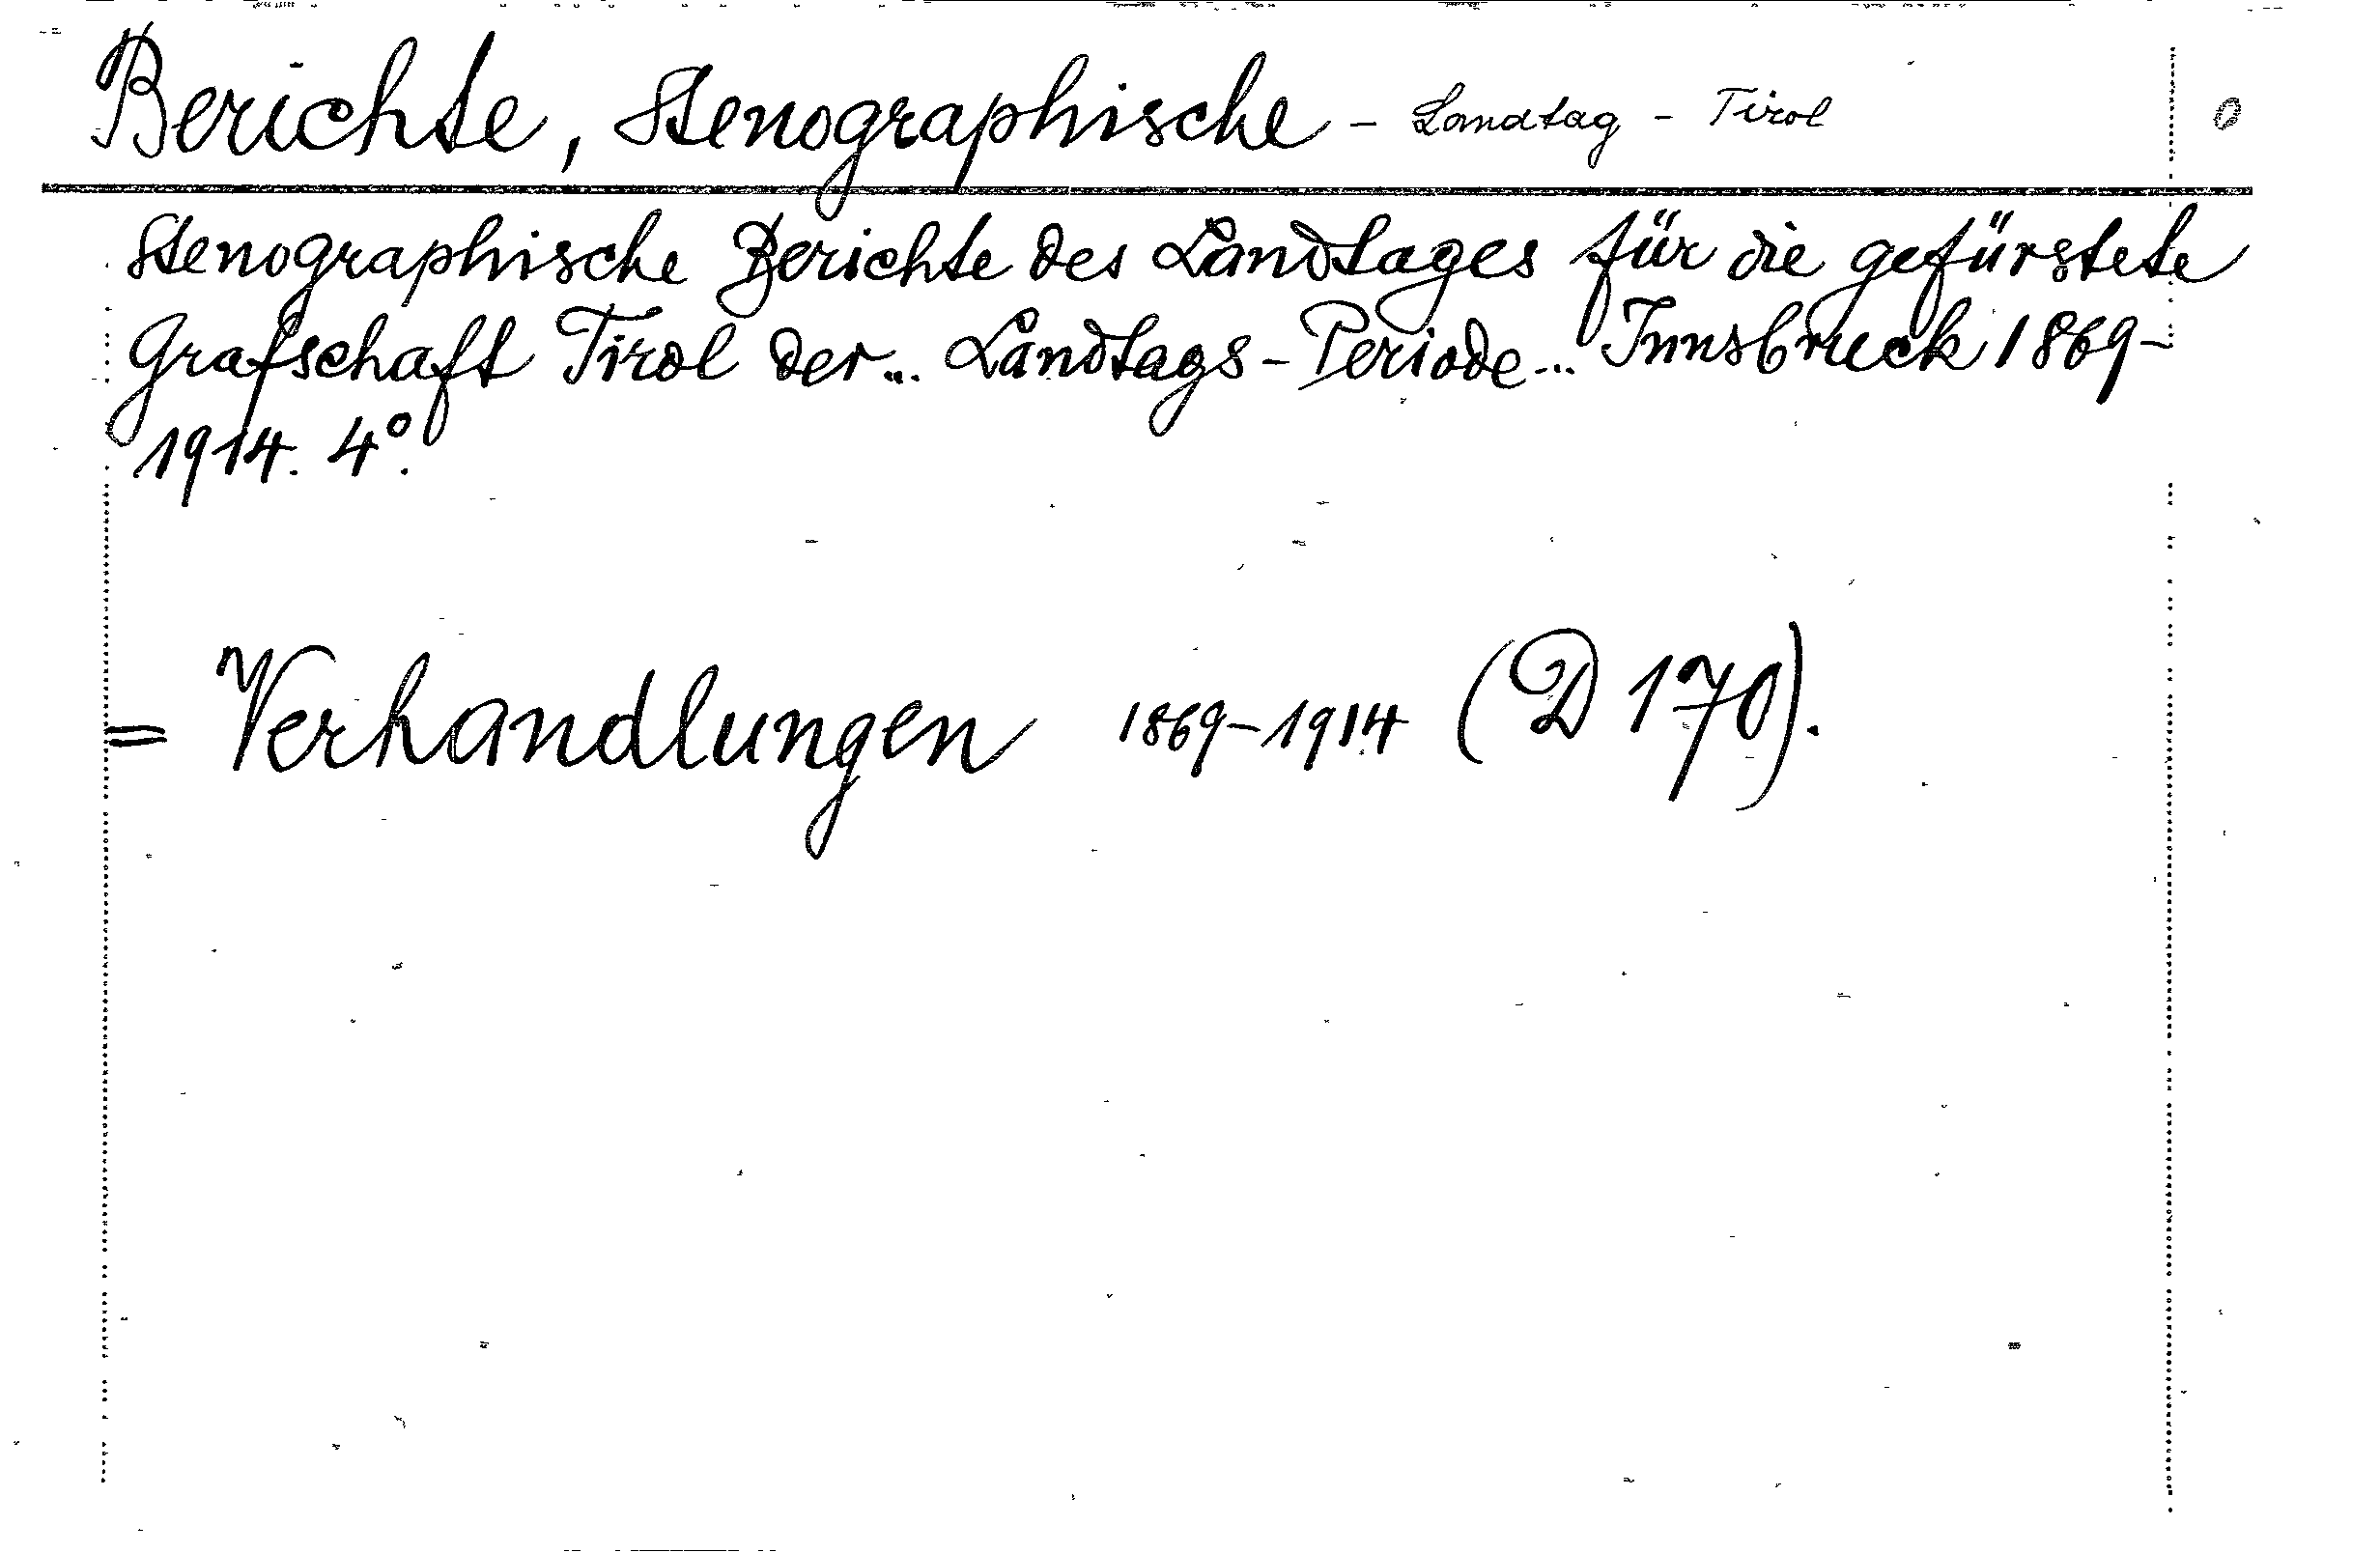 Berichte, Stenographische - Landtag - Tirol 0
Stenographische Berichte des Landtages für die gefürstete
Grafschaft Tirol der... Landtags-Periode... Innsbruck 1869-
1914. 4°.
= Verhandlungen 1869-1914 (D 170).